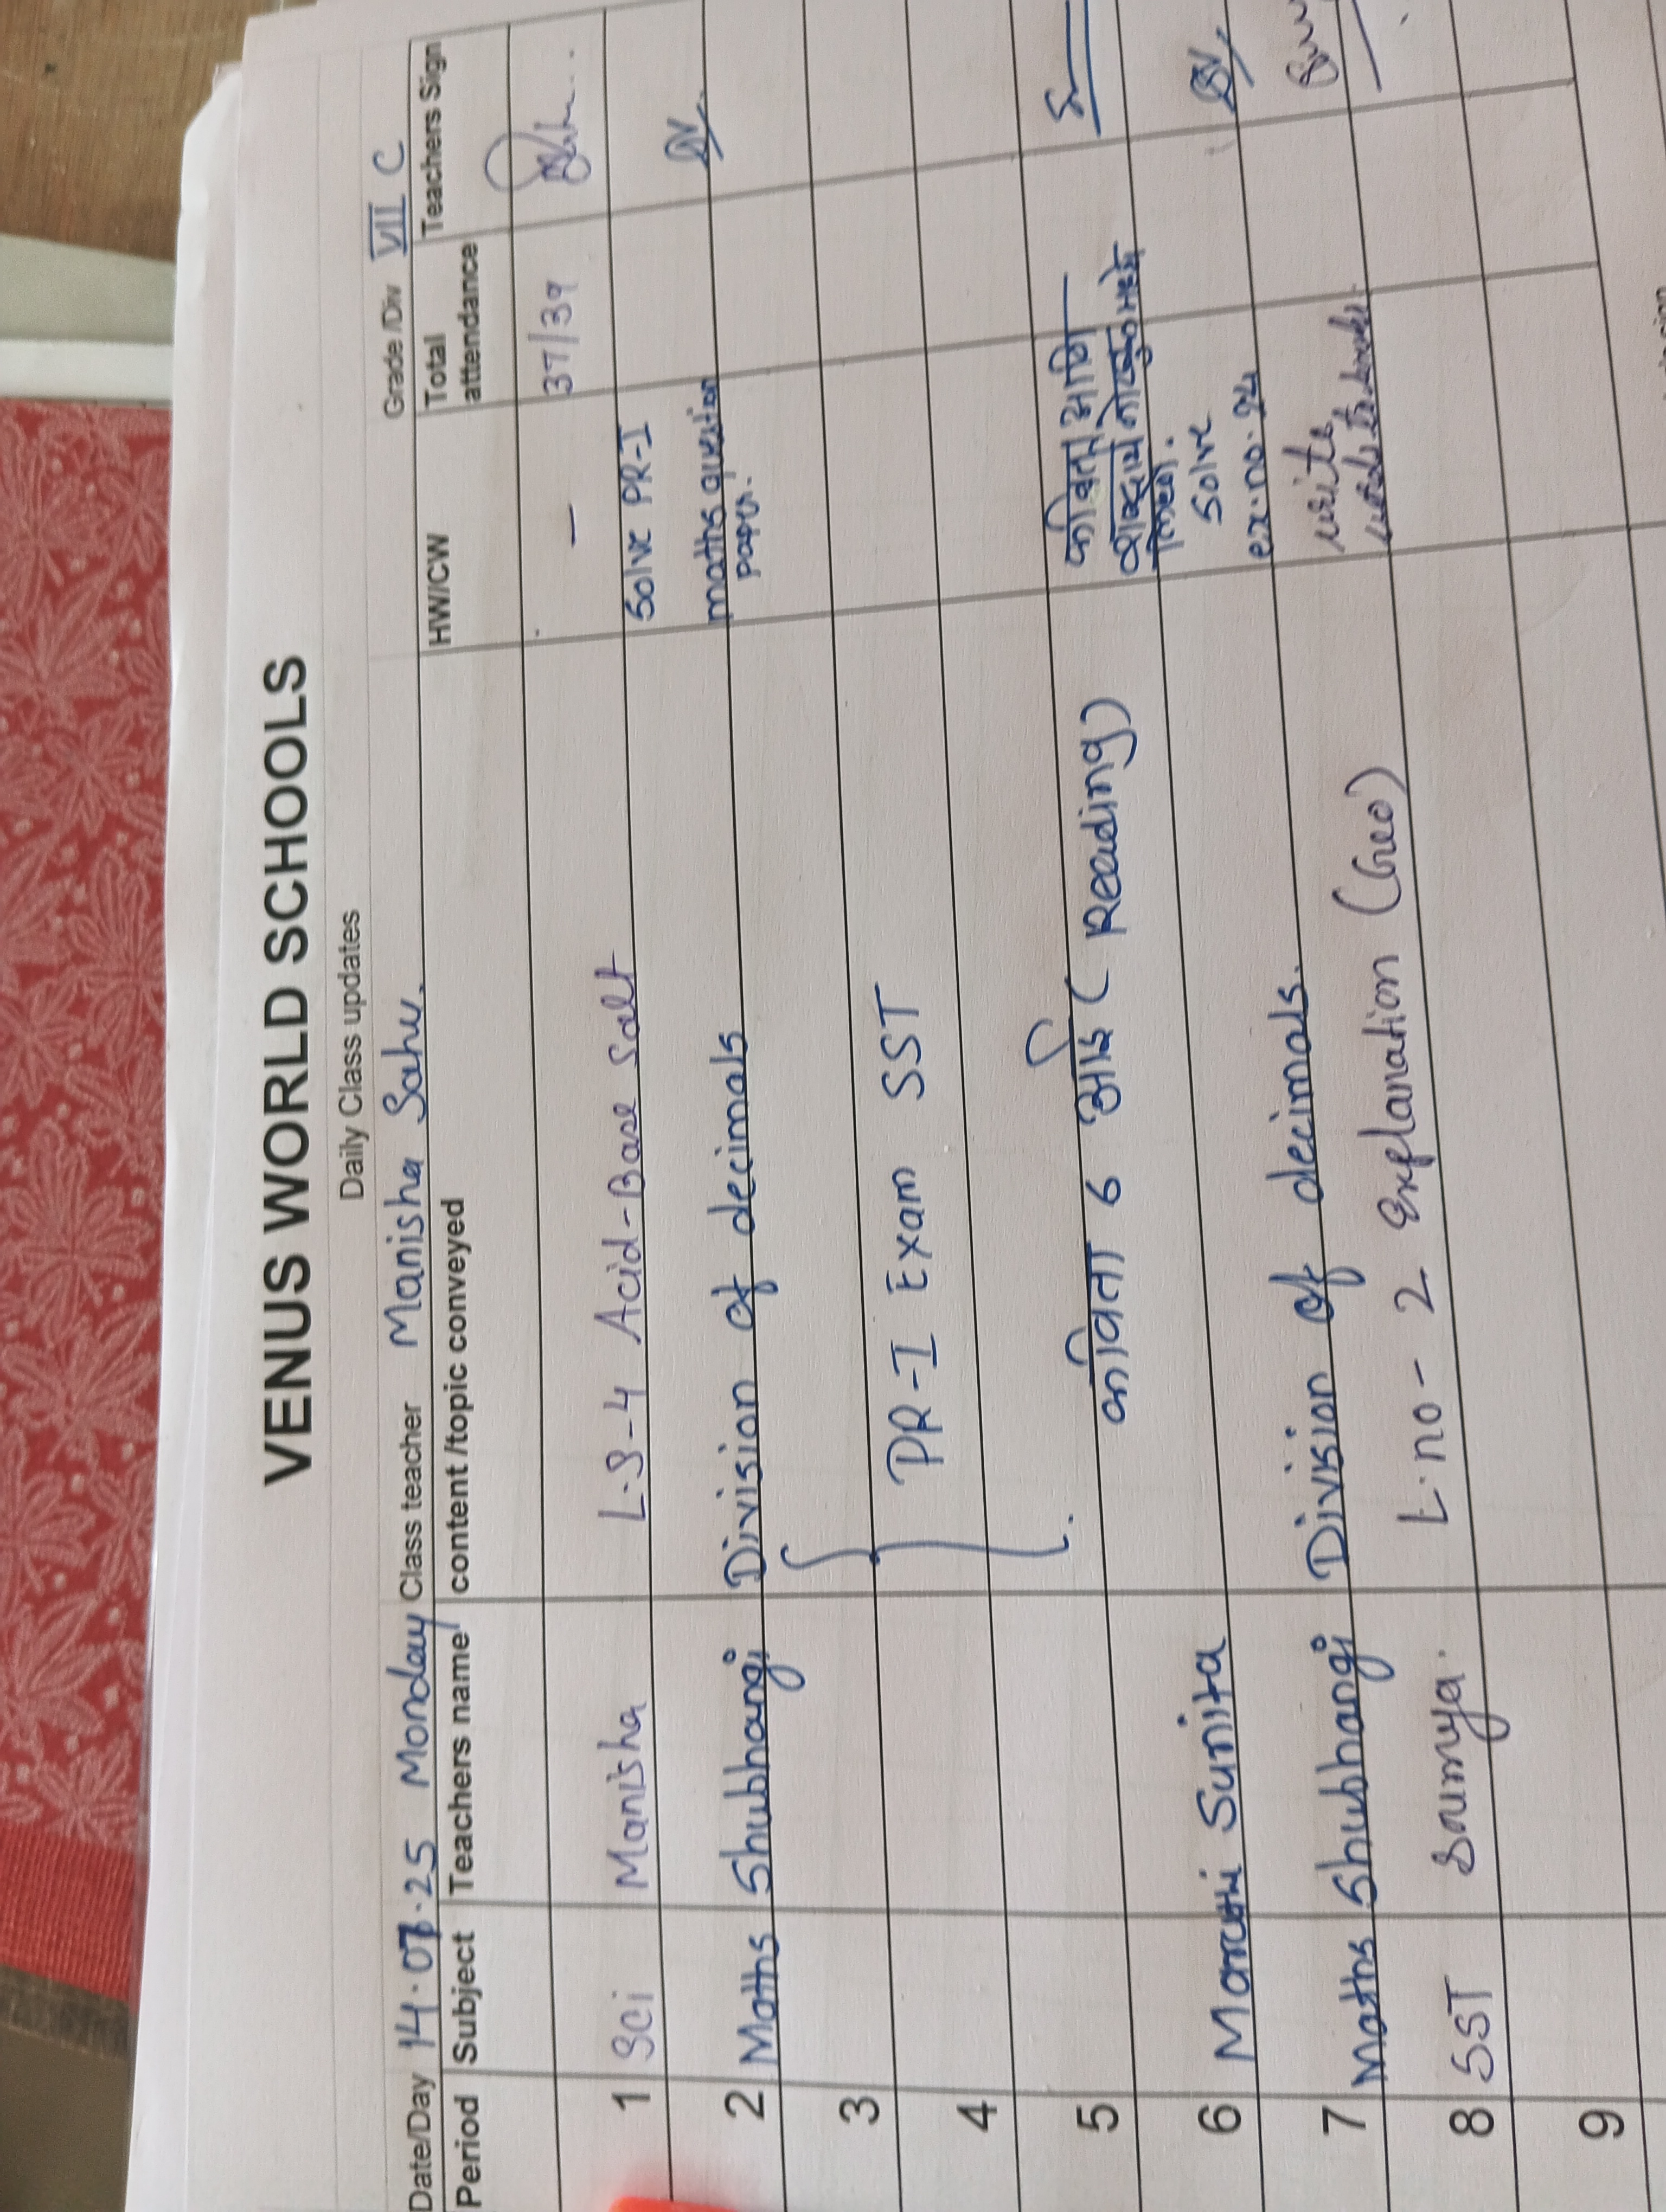 VENUS WORLD SCHOOLS
Daily Class updates
Date/Day 14.07.25 Monday Class teacher Manisha Sahu. Grade/Div VII C
Period Subject Teachers name content/topic conveyed HW/CW Total attendance Teachers Sign
1 Sci Manisha L-3-4 Acid-Base Salt — 37/39
2 Maths Shubhangi Division of decimals Solve PR-I
maths question
paper.
3
4 PR-I Exam SST
5
6 Marathi Sunita कविता 6 आई (Reading) कविता आणि
शब्दार्थ नोटबुक मध्ये
लिहिणे.
7 Maths Shubhangi Division of decimals. Solve
ex.no. 14
8 SST Soumya. L.no-2 Explanation (Geo) write
9